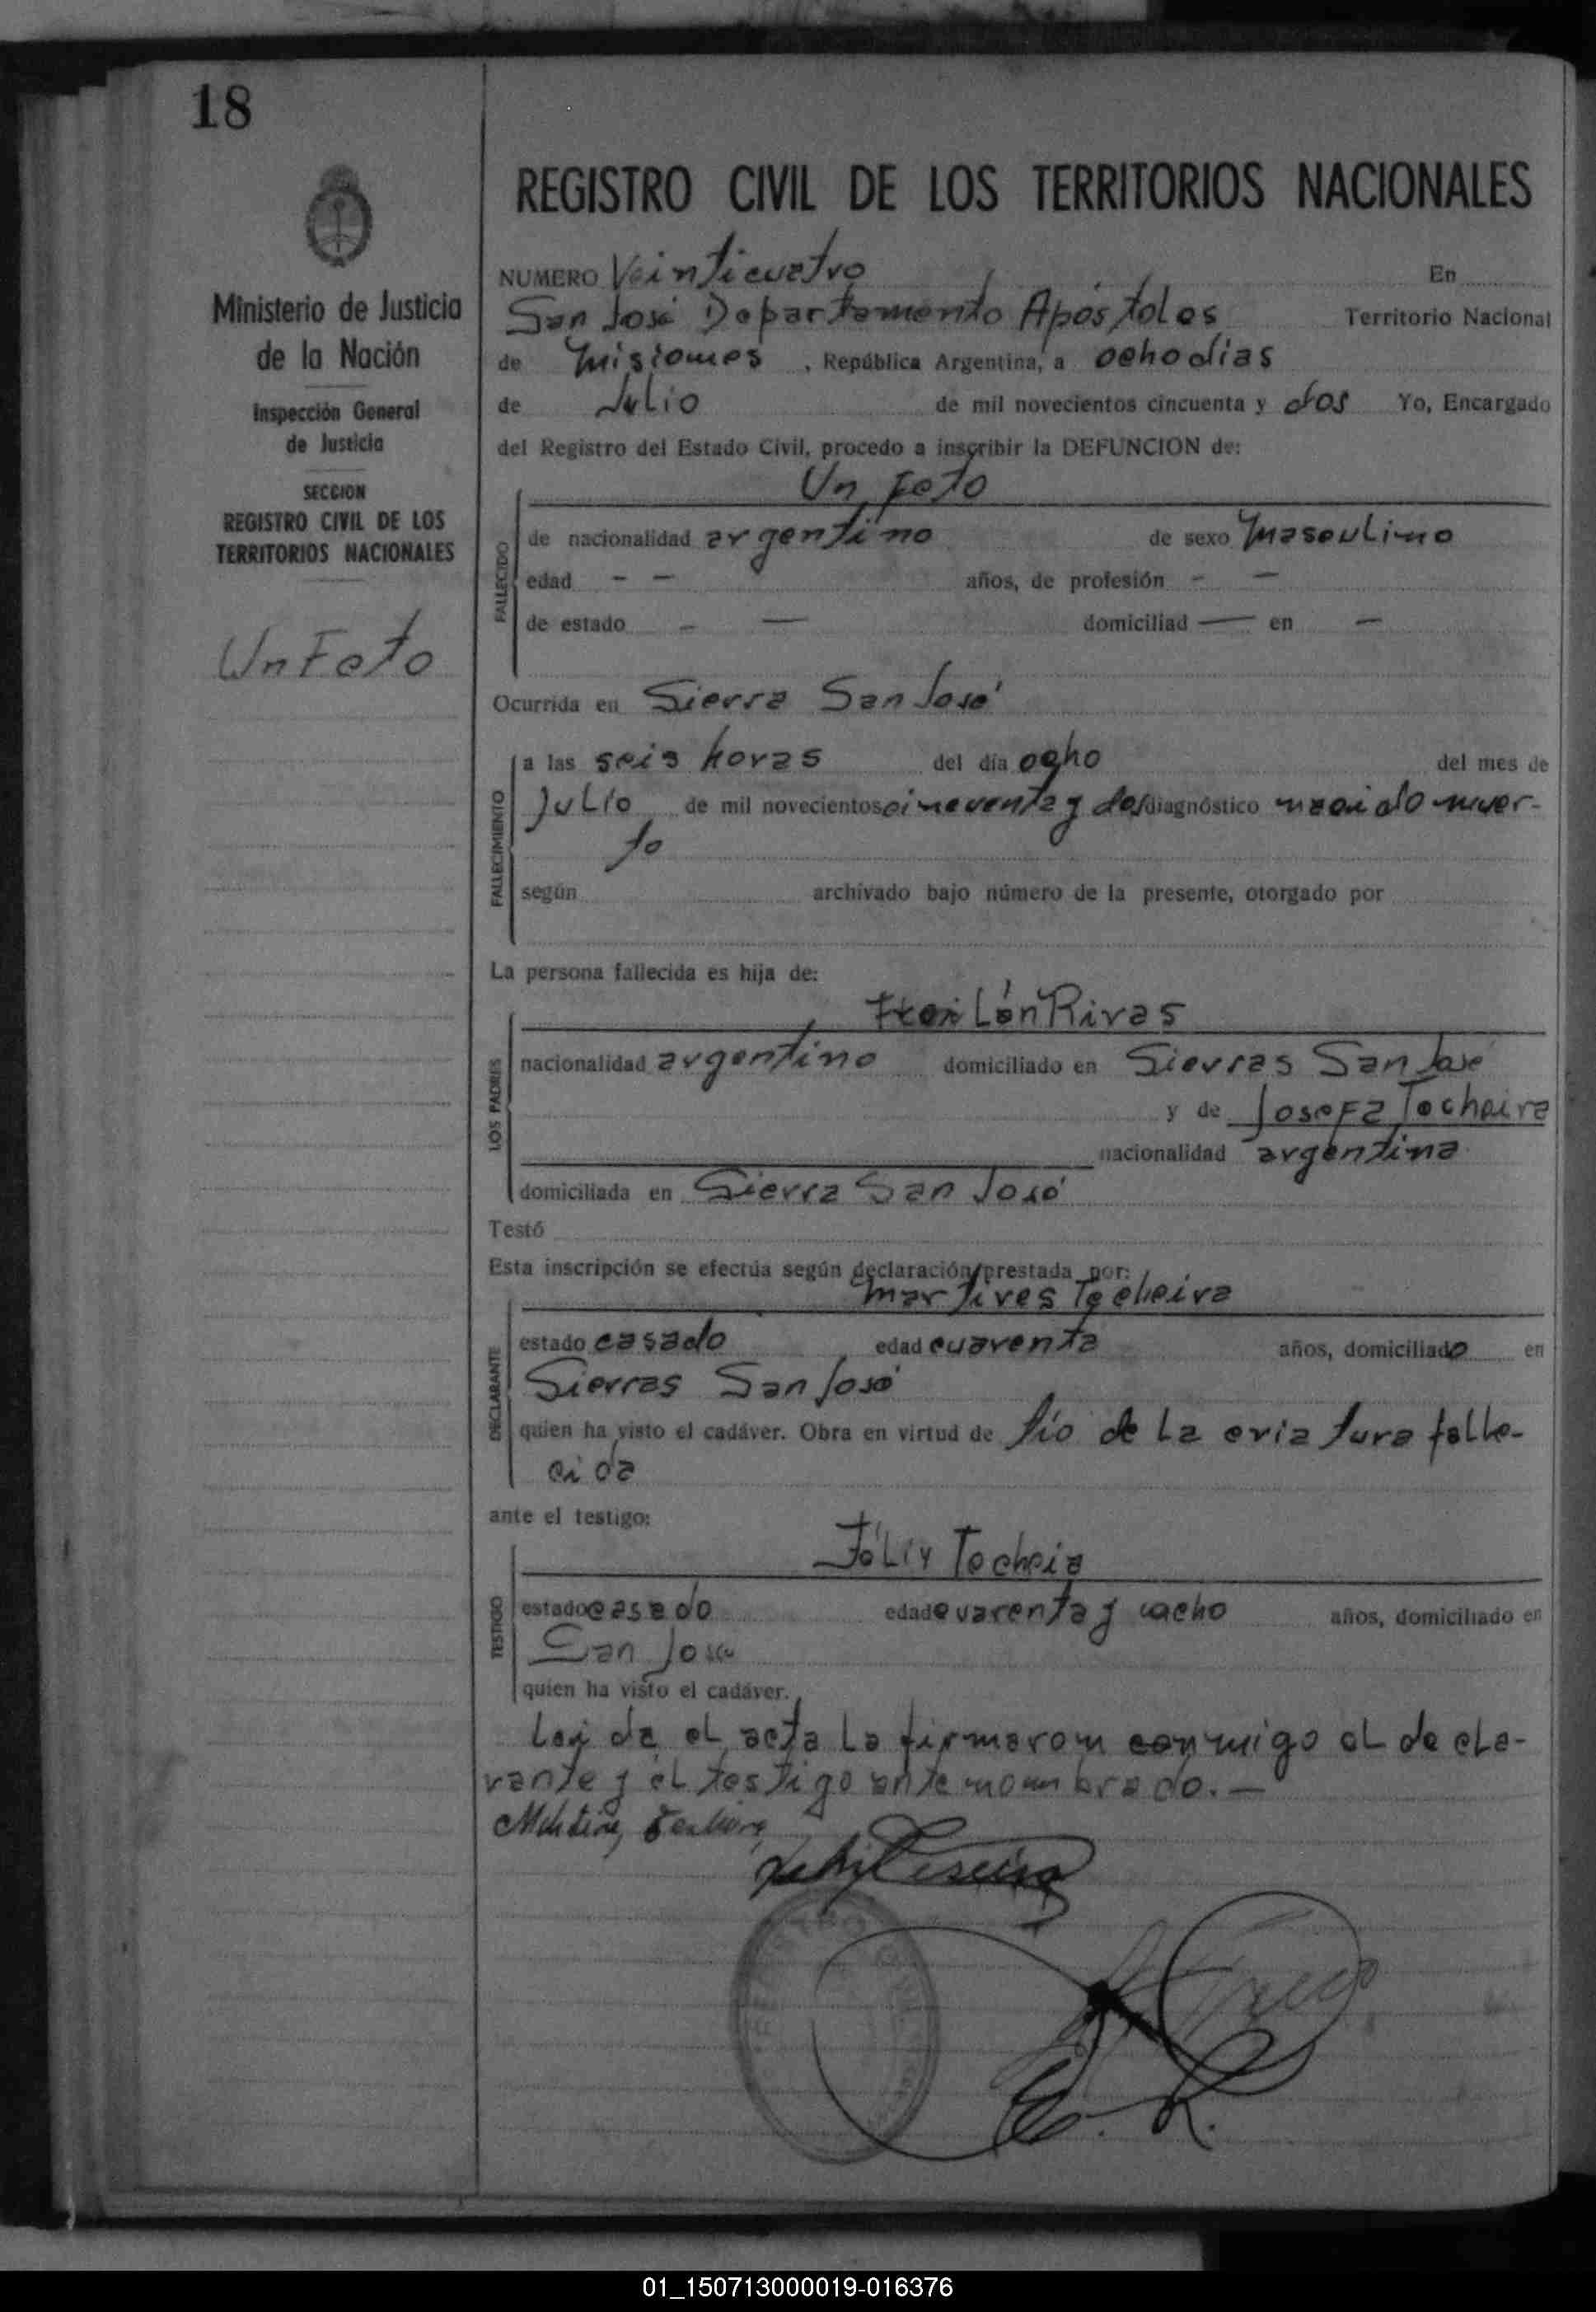 18
Ministerio de Justicia
de la Nación
Inspección General
de Justicia
SECCION
REGISTRO CIVIL DE LOS
TERRITORIOS NACIONALES
Un Feto
REGISTRO CIVIL DE LOS TERRITORIOS NACIONALES
NUMERO Veinticuatro En
San José Departamento Apóstoles Territorio Nacional
de Misiones, República Argentina, a ocho dias
de Julio de mil novecientos cincuenta y dos Yo, Encargado
del Registro del Estado Civil, procedo a inscribir la DEFUNCION de:
Un Feto
FALLECIDO
de nacionalidad argentino de sexo masculino
edad - - años, de profesión - -
de estado - - domiciliad - en -
Ocurrida en Sierra San José
FALLECIMIENTO
a las seis horas del día ocho del mes de
Julio de mil novecientos cincuenta y dos diagnóstico nacido muer-
to
según archivado bajo número de la presente, otorgado por
La persona fallecida es hija de:
Rivas
LOS PADRES
nacionalidad argentino domiciliado en Sierras San José
y de Josefa Techeira
nacionalidad argentina
domiciliada en Sierra San José
Testó
Esta inscripción se efectúa según declaración prestada por:
Martires Techeira
DECLARANTE
estado casado edad cuarenta años, domiciliado en
Sierras San José
quien ha visto el cadáver. Obra en virtud de tío de la criatura falle-
cida
ante el testigo:
Félix Techeia
TESTIGO
estado casado edad cuarenta y ocho años, domiciliado en
San José
quien ha visto el cadáver.
Leida el acta la firmaron conmigo el decla-
rante y el testigo antenombrado. -
REGISTRO CIVIL
01_150713000019-016376